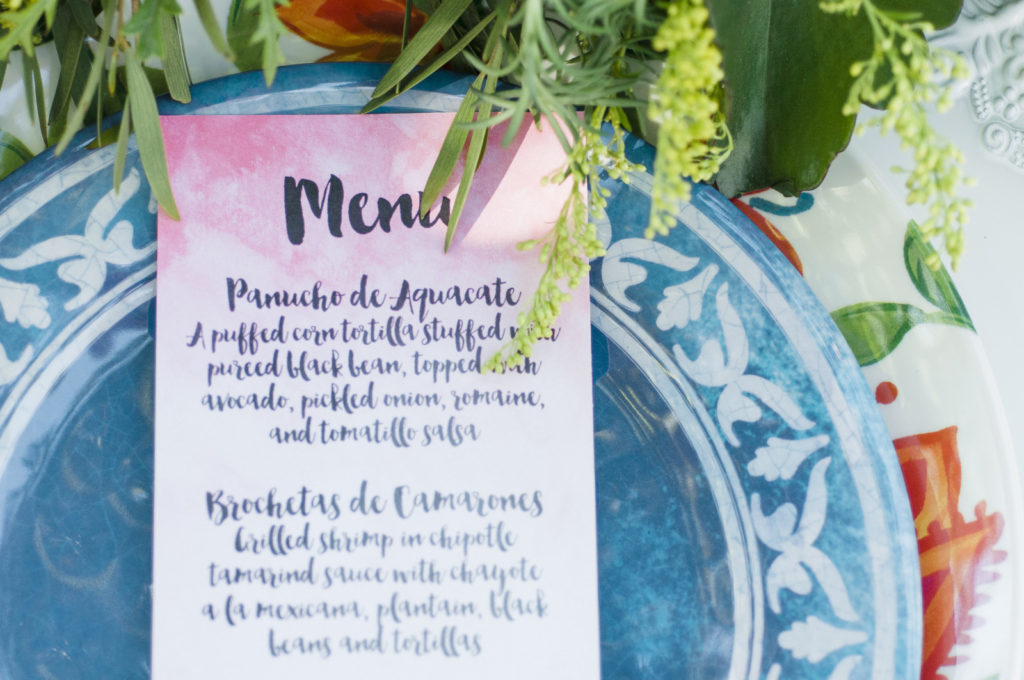 Menu
Panucho de Aquacate
A puffed corn tortilla stuffed with
pureed black bean, topped with
avocado, pickled onion, romaine,
and tomatillo salsa
Brochetas de Camarones
Grilled shrimp in chipotle
tamarind sauce with chayote
a la mexicana, plantain, black
beans and tortillas